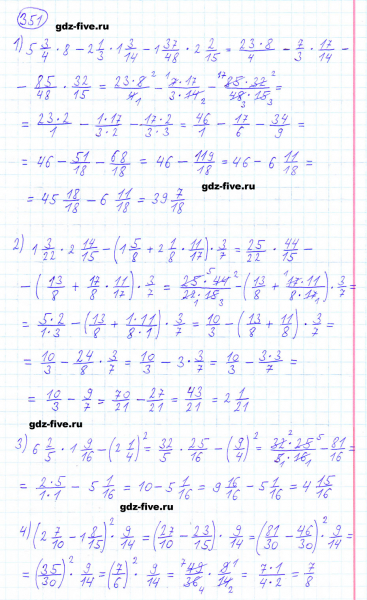 351
gdz-five.ru
1) 5 3/4 · 8 − 2 1/3 · 1 3/14 − 1 37/48 · 2 2/15 = 23·8/4 − 7/3 · 17/14 −
− 85/48 · 32/15 = 23·8²/4₁ − ¹7·17/3·14₂ − ¹⁷85·32²/48₃·15₃ =
= 23·2/1 − 1·17/3·2 − 17·2/3·3 = 46/1 − 17/6 − 34/9 =
= 46 − 51/18 − 68/18 = 46 − 119/18 = 46 − 6 11/18 =
gdz-five.ru
= 45 18/18 − 6 11/18 = 39 7/18
gdz-five.ru
2) 1 3/22 · 2 14/15 − (1 5/8 + 2 1/8 · 11/17) · 3/7 = 25/22 · 44/15 −
− (13/8 + 17/8 · 11/17) · 3/7 = ⁵25·44²/22₁·15₃ − (13/8 + ¹17·11/8·17₁) · 3/7 =
= 5·2/1·3 − (13/8 + 1·11/8·1) · 3/7 = 10/3 − (13/8 + 11/8) · 3/7 =
= 10/3 − 24/8 · 3/7 = 10/3 − 3 · 3/7 = 10/3 − 3·3/7 =
= 10/3 − 9/7 = 70/21 − 27/21 = 43/21 = 2 1/21
gdz-five.ru
3) 6 2/5 · 1 9/16 − (2 1/4)² = 32/5 · 25/16 − (9/4)² = 32²·25⁵/5₁·16₁ − 81/16 =
= 2·5/1·1 − 5 1/16 = 10 − 5 1/16 = 9 16/16 − 5 1/16 = 4 15/16
gdz-five.ru
4) (2 7/10 − 1 8/15)² · 9/14 = (27/10 − 23/15)² · 9/14 = (81/30 − 46/30)² · 9/14 =
= (35/30)² · 9/14 = (7/6)² · 9/14 = ⁷49/36₄ · 9¹/14₂ = 7·1/4·2 = 7/8